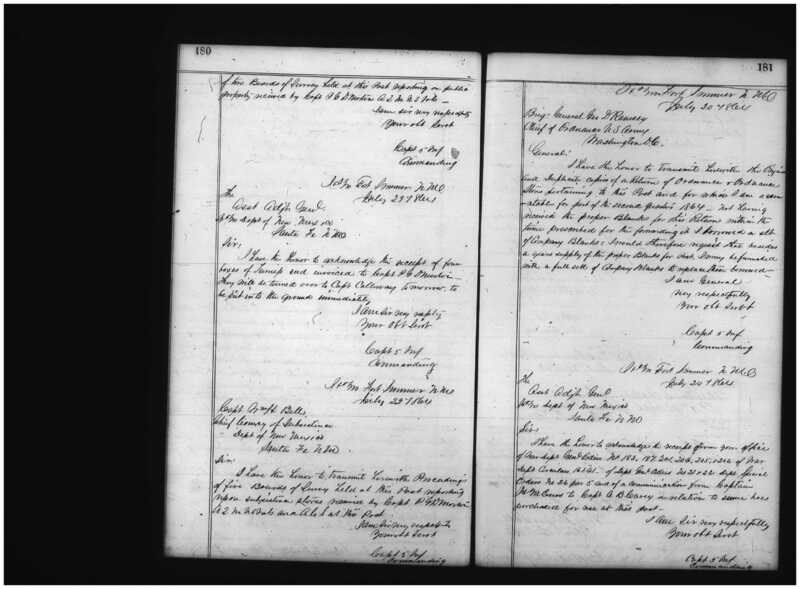 180
of two Boards of Survey held at this Post reporting on public
property received by Capt
I am sir very respectfully
Your obt Servt
Capt 5 Inf
Commanding
Fort Sumner N. M.
July 22d 1864
The
Asst Adjt Genl
Dept of New Mexico
Santa Fe N M
Sir;
I have the honor to acknowledge the receipt of four
boxes of turnip seed invoiced to Capt
They will be turned over to Capt Calloway tomorrow, to
be put into the ground immediately
I am Sir very resptly
Your Obt Servt
Capt 5 Inf
Commanding
Fort Sumner N M
July 22d 1864
Capt Bell,
Chief Comsy of Subsistence
Dept of New Mexico
Santa Fe N M
Sir
I have the honor to transmit herewith Proceedings
of five Boards of Survey held at this Post reporting
upon subsistence stores received by Capt
at this Post
I am Sir very respectfly
Your obt Servt
Capt 5 Inf
Commanding
181
Fort Sumner N. M.
July 20th 1864
Brig. General Geo D. Ramsay
Chief of Ordnance U S Army
Washington D. C.
General;
I have the honor to transmit herewith the Original
and duplicate copies of a Return of Ordnance & Ordnance
Stores pertaining to this Post and for which I am accoun-
table for part of the second quarter 1864 – not having
received the proper Blanks for this Return within the
time prescribed for the forwarding it I borrowed a set
of Company Blanks; I would therefore request that besides
a years supply of the proper Blanks for Post I may be furnished
with a full sett of Company Blanks to replace those borrowed –
I am General
very respectfully
Your obt Servt
Capt 5 Inf
Commanding
Fort Sumner N. M.
July 24th 1864
The
Asst Adjt Genl
Dept of New Mexico
Santa Fe N M
Sir;
I have the honor to acknowledge the receipt from your office
of War Dept Genl Orders No 183, of War
Dept Circulars of Dept Genl Orders Dept Special
Orders and of a communication from Captain
to Capt in relation to some
purchased for use at this post –
I am Sir very respectfully
Your obt Servt
Capt 5 Inf
Commanding